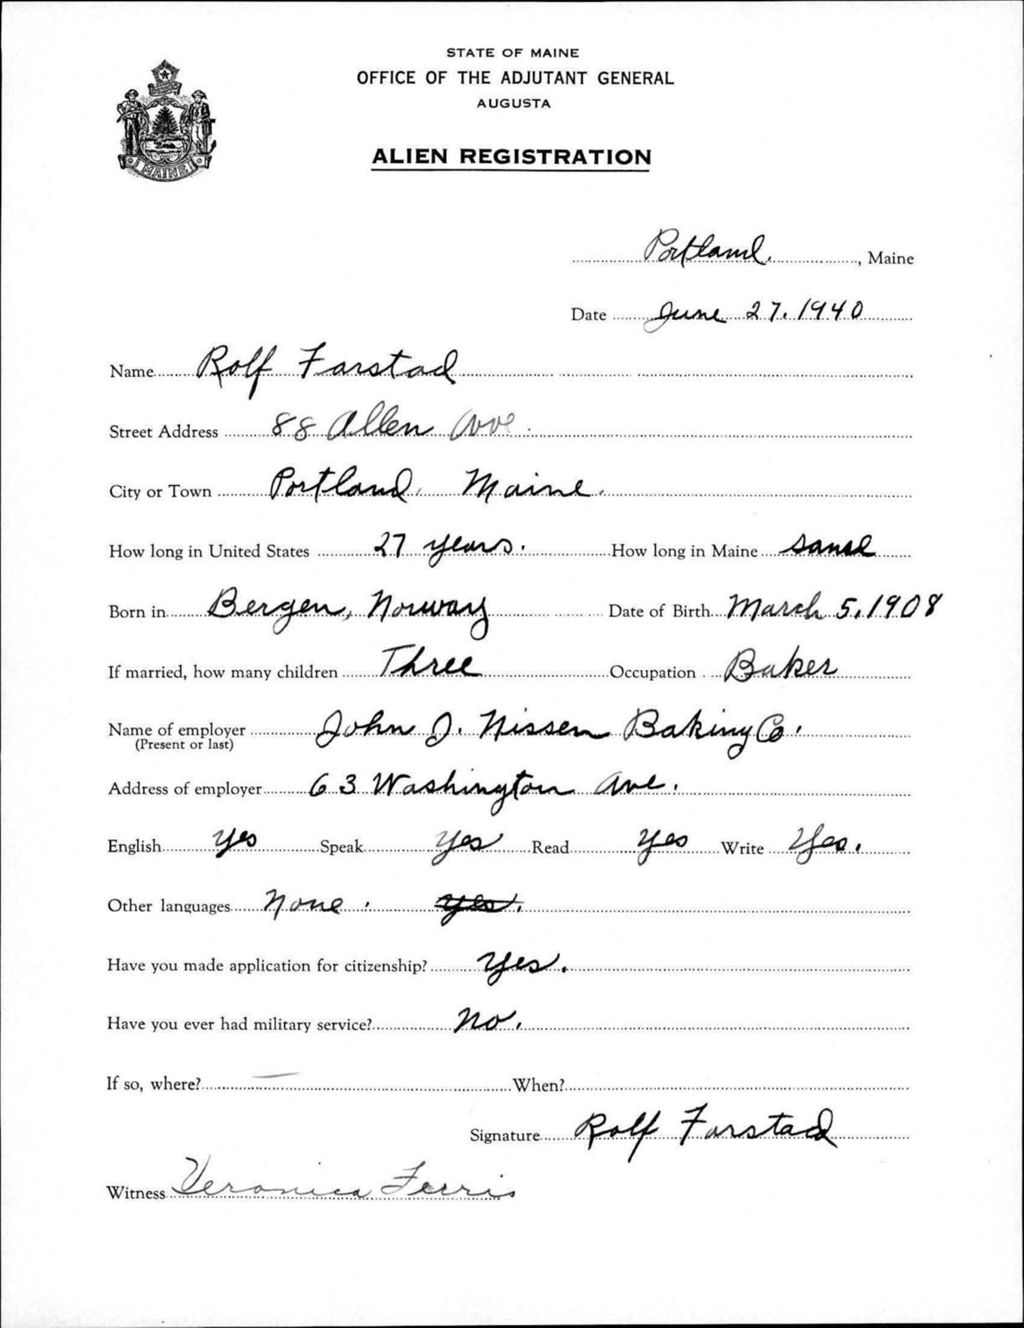 STATE OF MAINE
OFFICE OF THE ADJUTANT GENERAL
AUGUSTA
ALIEN REGISTRATION
MAINE
Portland, Maine
Date June 27, 1940
Name Rolf Farstad
Street Address 88 Allen Ave
City or Town Portland, Maine.
How long in United States 27 years. How long in Maine same
Born in Bergen, Norway Date of Birth March 5, 1908
If married, how many children Three Occupation Baker
Name of employer John J. Nissen Baking Co.
(Present or last)
Address of employer 63 Washington Ave.
English Yes Speak Yes Read Yes Write Yes.
Other languages None. yes.
Have you made application for citizenship? Yes.
Have you ever had military service? No.
If so, where? — When?
Signature Rolf Farstad
Witness Veronica Ferris